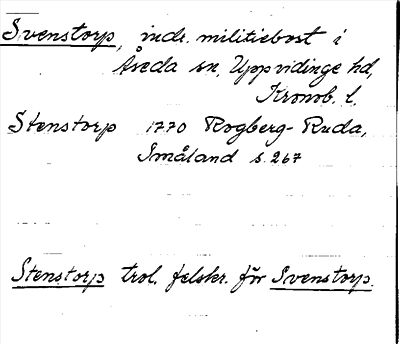 Svenstorp, indr. militiebost. i
Åseda sn, Uppvidinge hd,
Kronob. l.
Stenstorp 1770 Rogberg-Ruda,
Småland s. 267
Stenstorp trol. felskr. för Svenstorp.